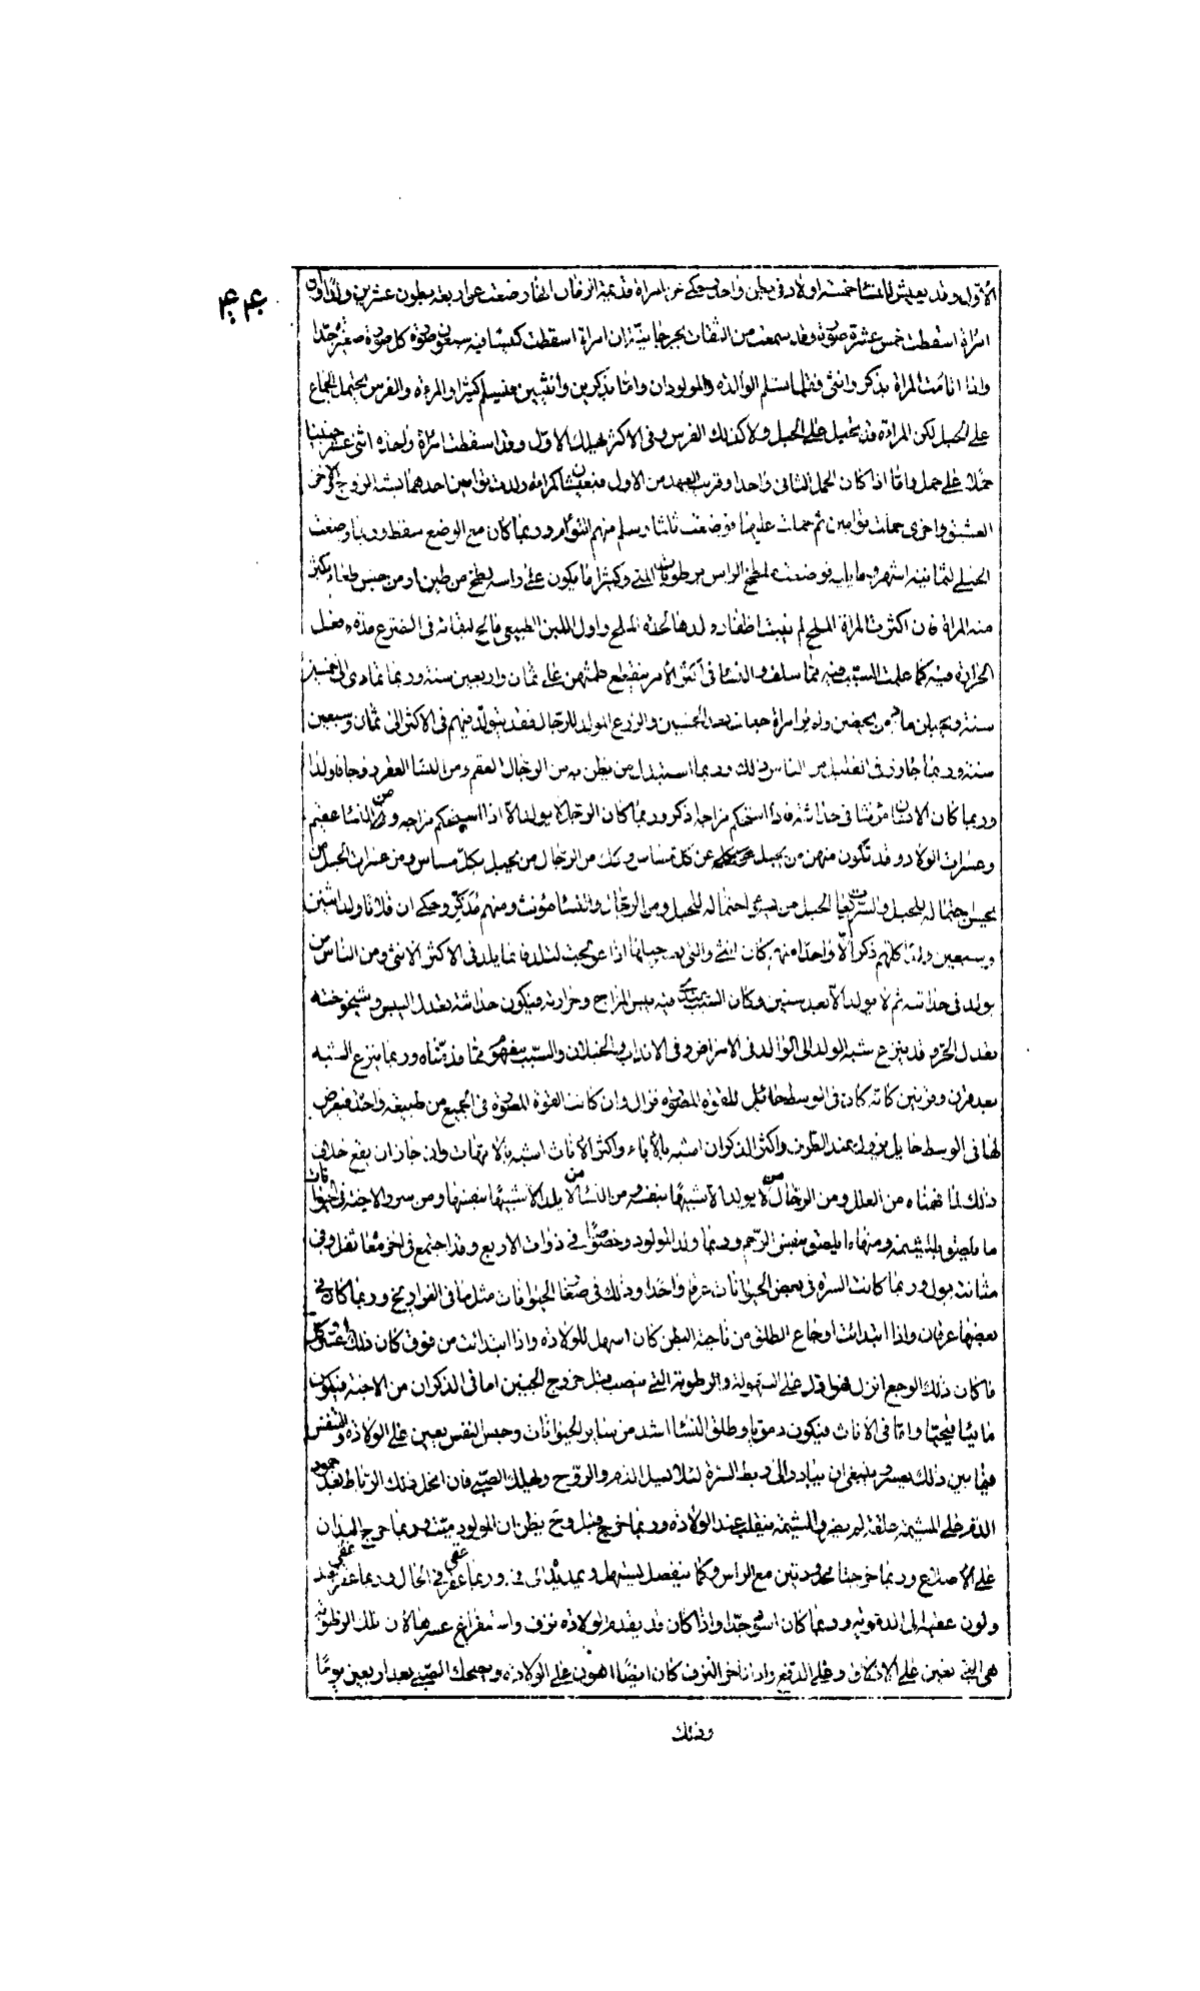 الأول وقد يعيش للنسا خمسة اولاد في بطن واحد يحكى عن امراة قديمة الزمان انها وضعت عن اربعة بطون عشرين ولدا وان
امراة اسقطت خمس عشرة صورة وقد سمعت من الثقات بجرجانية ان امراة اسقطت كيسا فيه سبعون صورة كل صورة صغيرة جدا
واذا اتأمت المراة بذكر وانثى فقلما تسلم الوالدة والمولودان واما بذكرين وانثيين فيسلم كثيرا والمرءة والفرس يحتمل الجماع
على الحبل لكن المراءة قد تحبل على الحبل ولا كذلك الفرس وفي الاكثر يهلك الاول وقد اسقطت امراة واحدة اثنى عشر جنينا
حملا على حمل واما اذا كان الحمل الثاني واحدا وقريب العهد من الاول فيعيشان كامراة ولدت توامين احدهما يشبه الزوج والاخر
العشيق واخرى حملت توامين ثم حملت عليهما فوضعت ثالثا وسلم منهم التوأم وربما كان مع الوضع سقط وربما وضعت
الحبلى لثمانية اشهر وما يليه فوضعت ملطخ الراس برطوبة المنى وكثيرا ما يكون على راسه لطخ من طين او من جنس طعام يكثر
منه المراة فان اكثرت المراة الملح لم تنبت اظفار ولدها لحدة الملح واول اللبن الطبيعي مالح لبقائه في الضرع مدة وفعل
الحرارة فيه كما علمت السبب فيه مما سلف والنسا في اكثر الامر ينقطع طمثهن على ثمان واربعين سنة وربما تمادى الى خمسين
سنة ويحبلن ما دمن يحضن ولم تر امراة حبلت بعد الخمسين والزرع المولد للرجال فقد يتولد فيهم في الاكثر الى ثمان وسبعين
سنة وربما جاوز في القليل من الناس ذلك وربما استبدل من يظن به من الرجال العقم ومن النسا العقر زوجا فاولدا
وربما كان الانسان مؤنثا في حداثته فاذا استحكم مزاجه اذكر وربما كان الرجل لا يولد الا اذا استحكم مزاجه ومن النسا عقيم
وعسرات الولاد وقد تكون منهن من يحبل عن كل مساس وتلك من الرجال من يحبل بكل مساس ومن عسرات الحبل من
يحسن احتماله للحبل ومن الرجال والنسا مؤنث ومنهم مذكر وحكى ان فلانا ولد اثنين
وسبعين ولدا كلهم ذكر الا واحدا منهم كان انثى والتي يعسر حبلها اذا عولجت لتلد فانما يلد في الاكثر الانثى ومن الناس من
يولد في حداثته ثم لا يولد الا بعد سنين وكان السبب فيه يبس المزاج وحرارته فيكون حداثته تعدل اليبس وشيخوخته
تعدل الحر وقد ينزع شبه الولد الى الوالد في الامراض وفي الانداب والخيلان والسبب مفهوم مما قدمناه وربما ينزع الشبه
بعد قرن وقرنين كانه كان في الوسط حائل للقوة المصورة فزال وان كانت القوة المصورة في الجميع من طبيعة واحدة فيعرض
لها في الوسط حايل يزول عند الطرف واكثر الذكران اشبه بالاباء واكثر الاناث اشبه بالامهات وان جاز ان يقع خلاف
ذلك لما فهمناه من العلل ومن الرجال من لا يولد الا شبيها بنفسه ومن النسا من لا يلد الا شبيها بنفسها ومن سرر الاجنة في الحيوانات
ما يلصق بالمشيمة ومنها ما يلصق بنفس الرحم وربما ولد المولود وخصوصا في ذوات الاربع وقد اجتمع في اخر معائه ثفل وفي
مثانته بول وربما كانت السرة في بعض الحيوانات عرقا واحدا وذلك في صغار الحيوانات مثل ما في الفراريج وربما كان في
بعضها عرقان واذا ابتدأت اوجاع الطلق من ناحية البطن كان اسهل للولادة واذا ابتدأت من فوق كان ذلك اعسر وكل
ما كان ذلك الوجع انزل فهو ادل على السهولة والرطوبة التي تنصب قبل خروج الجنين اما في الذكران من الاجنة فيكون
مائيا قيحيا واما في الاناث فيكون دمويا وطلق النسا اشد من سائر الحيوانات وحبس النفس يعين على الولادة والتنفس
فيما بين ذلك يعسر وينبغي ان يبادر الى ربط السرة لئلا يسيل الدم والروح ويهلك الصبي فان انحل ذلك الرباط بعد جمود
الدم على المشيمة خلقة لم يضر والمشيمة ينقلب عند الولادة وربما خرج قبل وح يظن ان المولود ميت وربما خرج اليدان
على الاضلاع وربما خرجتا محدودتين مع الراس وكما ينفصل يستهل ويمد يديه الى فيه وربما عقى في الحال وربما عقى بعد
ولون عقيه الى الدموية وربما كان اسود جدا واذا كان قد تقدم الولادة نزف واستفراغ عسر هالان تلك الرطوبة
هي التي تعين على الازلاق وعلى الدفع واذا تاخر النزف كان ايضا اهون على الولادة ويضحك الصبي بعد اربعين يوما
وذلك